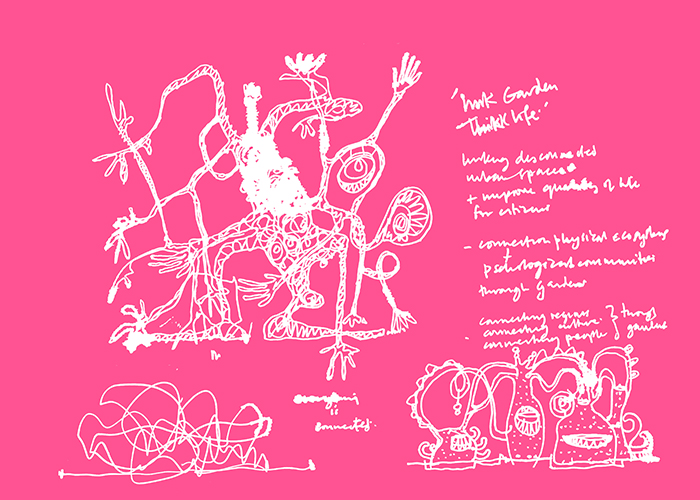 'Link Garden
Think life.'
linking disconnected
urban spaces
+ improve quality of life
for citizens
- connection physical ecosystems
+
psychological communities
through gardens
- connecting regions
connecting culture } through
connecting people } gardens
is
connected.